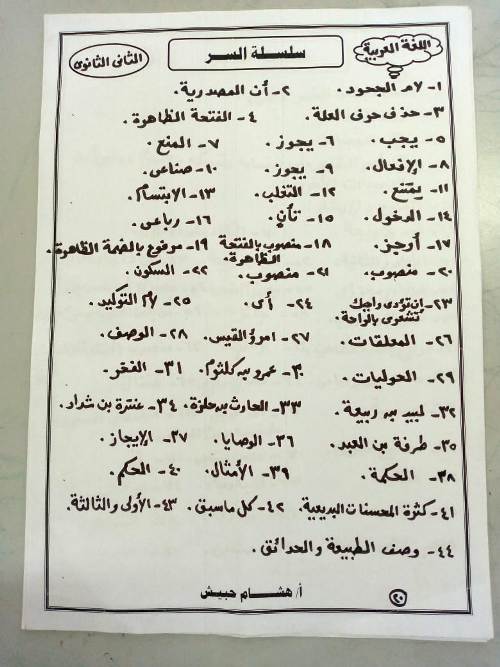 اللغة العربية
سلسلة السر
الثانى الثانوى
١- لام الجحود. ٢- أن المصدرية.
٣- حذف حرف العلة. ٤- الفتحة الظاهرة.
٥- يجب. ٦- يجوز. ٧- المنع.
٨- الإفعال. ٩- يجوز. ١٠- صناعى.
١١- يمتنع. ١٢- التغلب. ١٣- الابتسام.
١٤- الدخول. ١٥- تأنٍ. ١٦- رباعى.
١٧- أرجز. ١٨- منصوب بالفتحة الظاهرة. ١٩- مرفوع بالضمة الظاهرة.
٢٠- منصوب. ٢١- منصوب. ٢٢- السكون.
٢٣- إن تؤدى واجبك تشعرى بالراحة. ٢٤- أى. ٢٥- لام التوكيد.
٢٦- المعلقات. ٢٧- امرؤ القيس. ٢٨- الوصف.
٢٩- الحوليات. ٣٠- عمرو بن كلثوم. ٣١- الفخر.
٣٢- لبيد بن ربيعة. ٣٣- الحارث بن حلزة. ٣٤- عنترة بن شداد.
٣٥- طرفة بن العبد. ٣٦- الوصايا. ٣٧- الإيجاز.
٣٨- الحكمة. ٣٩- الأمثال. ٤٠- الحكم.
٤١- كثرة المحسنات البديعية. ٤٢- كل ماسبق. ٤٣- الأولى والثالثة.
٤٤- وصف الطبيعة والحدائق.
أ/ هشام حبيش
٢٠